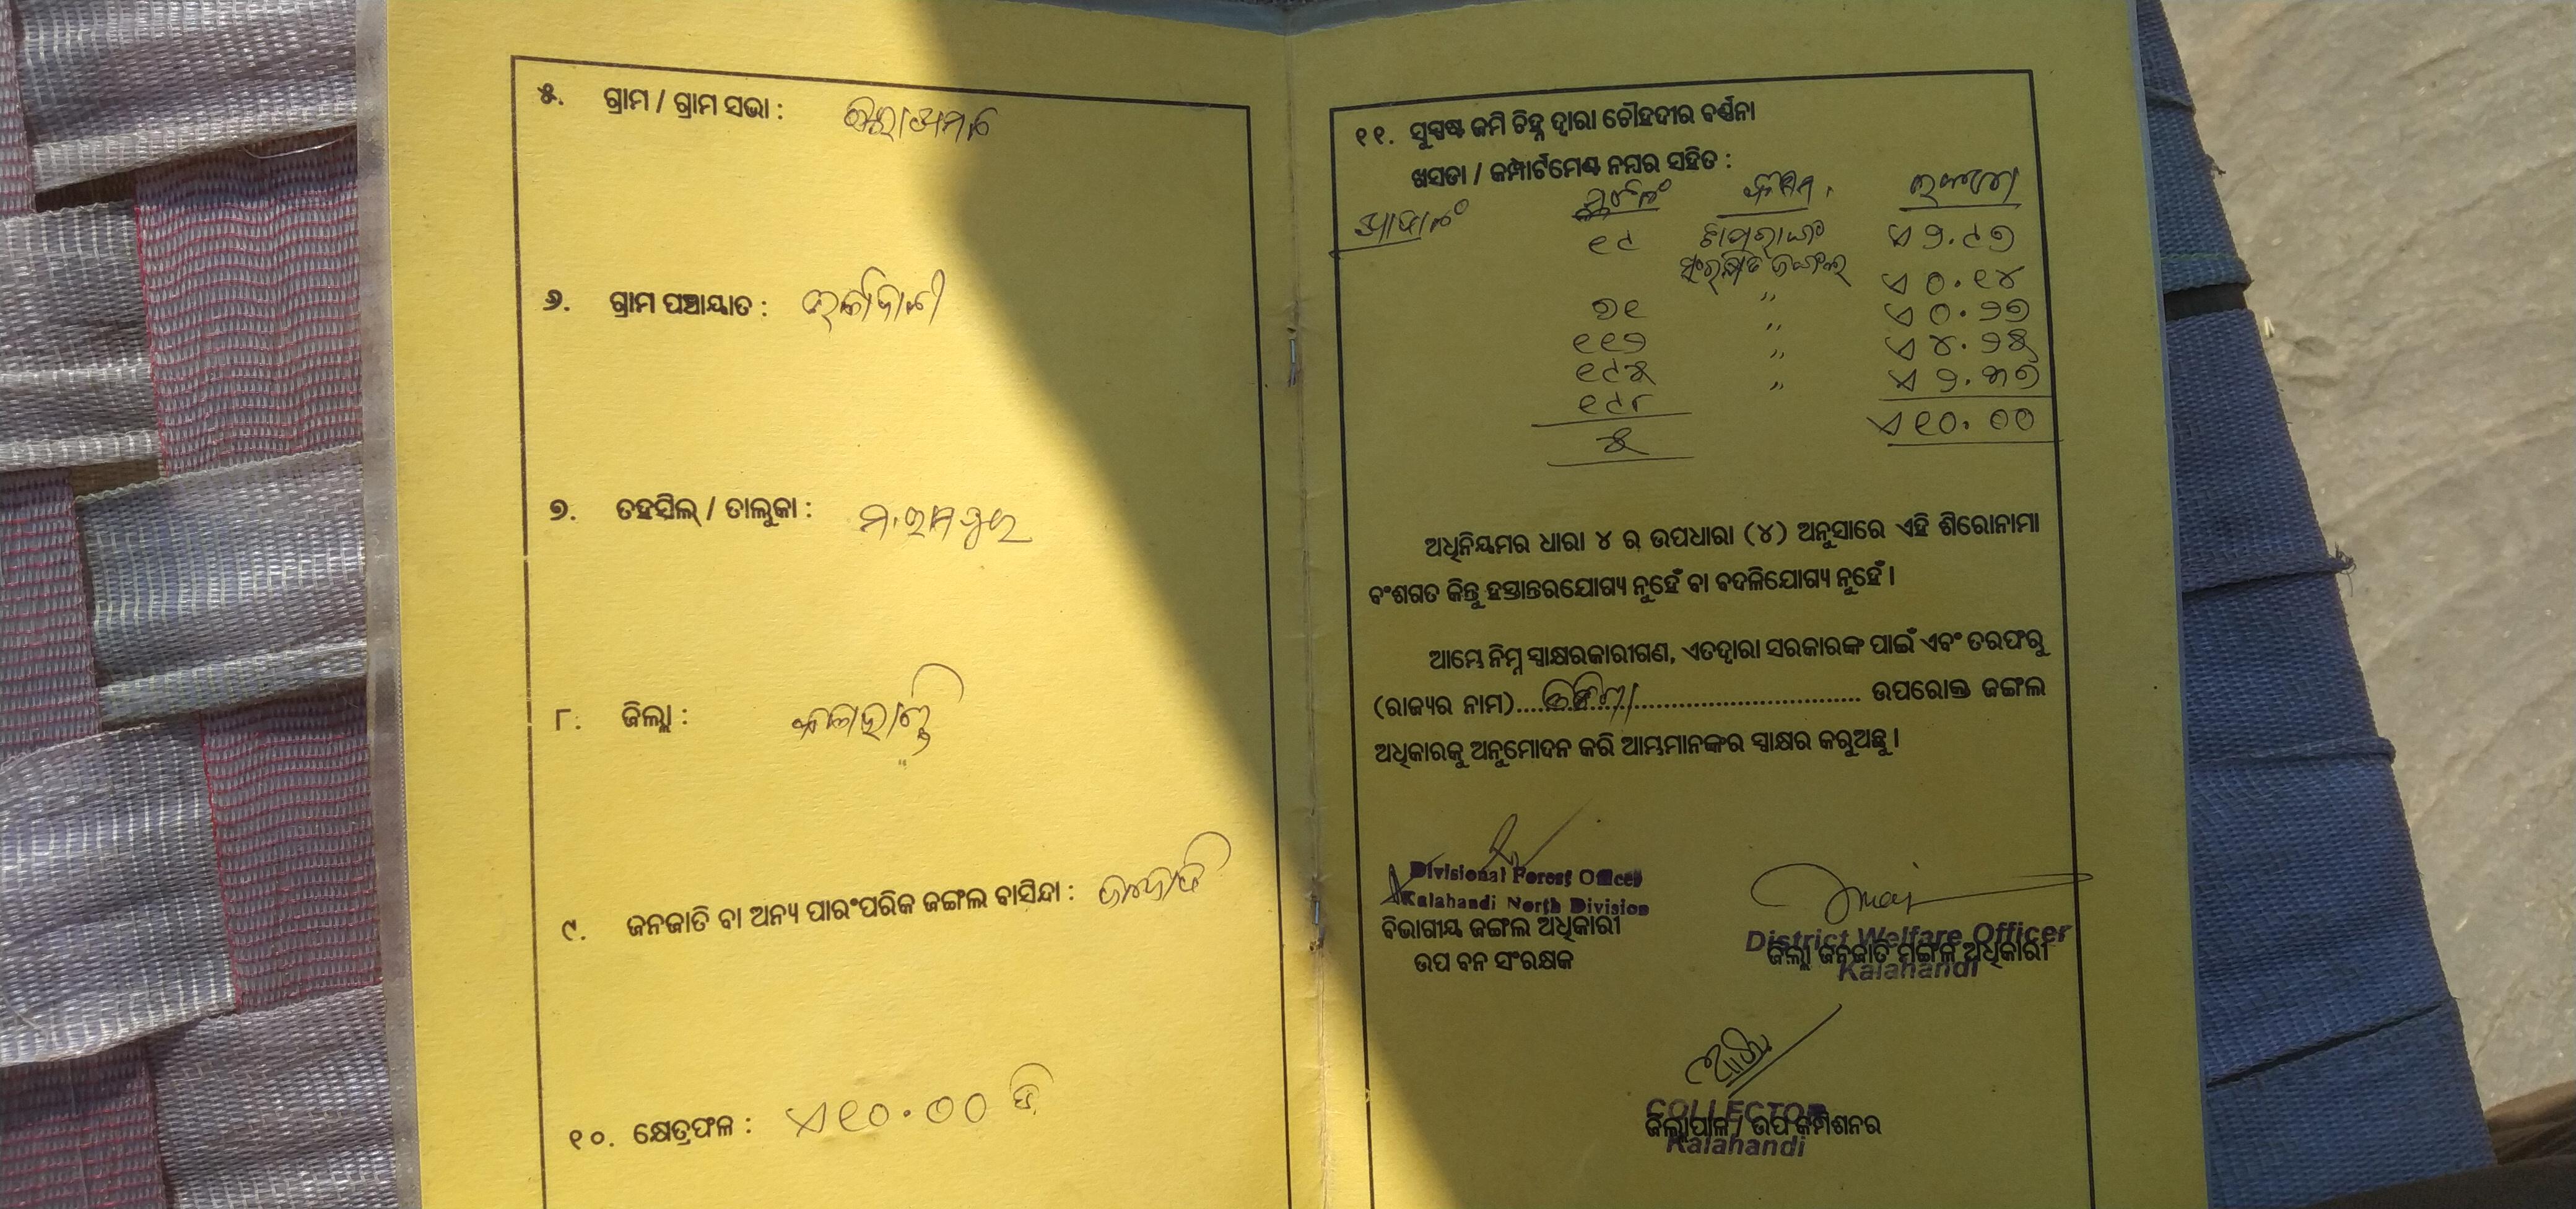 ୫. ଗ୍ରାମ / ଗ୍ରାମ ସଭା :
୬. ଗ୍ରାମ ପଞ୍ଚାୟାତ :
୭. ତହସିଲ୍ / ତାଲୁକା : ମ.ରାମପୁର
୮. ଜିଲ୍ଲା : କଳାହାଣ୍ଡି
୯. ଜନଜାତି ବା ଅନ୍ୟ ପାରଂପରିକ ଜଙ୍ଗଲ ବାସିନ୍ଦା : ଜନଜାତି
୧୦. କ୍ଷେତ୍ରଫଳ : ଏ ୧୦.୦୦ ଡି
୧୧. ସୁସ୍ପଷ୍ଟ ଜମି ଚିହ୍ନ ଦ୍ୱାରା ଚୌହଦୀର ବର୍ଣ୍ଣନା
ଖସଡା / କମ୍ପାର୍ଟମେଣ୍ଟ ନମ୍ବର ସହିତ :
ପ୍ଲଟ ନଂ କିସମ ରକବା
୧୯ ଏ ୨.୯୭
ସଂରକ୍ଷିତ ଜଙ୍ଗଲ ଏ ୦.୧୪
୭୧ " ଏ ୦.୨୭
୧୧୨ " ଏ ୪.୨୫
୧୯୫ " ଏ ୨.୩୭
୧୯୮ "
୫ ଏ ୧୦.୦୦
ଅଧିନିୟମର ଧାରା ୪ ର ଉପଧାରା (୪) ଅନୁସାରେ ଏହି ଶିରୋନାମା
ବଂଶଗତ କିନ୍ତୁ ହସ୍ତାନ୍ତରଯୋଗ୍ୟ ନୁହେଁ ବା ବଦଳିଯୋଗ୍ୟ ନୁହେଁ ।
ଆମ୍ଭେ ନିମ୍ନ ସ୍ୱାକ୍ଷରକାରୀଗଣ, ଏତଦ୍ୱାରା ସରକାରଙ୍କ ପାଇଁ ଏବଂ ତରଫରୁ
(ରାଜ୍ୟର ନାମ)..... ଓଡିଶା ..... ଉପରୋକ୍ତ ଜଙ୍ଗଲ
ଅଧିକାରକୁ ଅନୁମୋଦନ କରି ଆମ୍ଭମାନଙ୍କର ସ୍ୱାକ୍ଷର କରୁଅଛୁ ।
Divisional Forest Officer
Kalahandi North Division
ବିଭାଗୀୟ ଜଙ୍ଗଲ ଅଧିକାରୀ
ଉପ ବନ ସଂରକ୍ଷକ
District Welfare Officer
ଜିଲ୍ଲା ଜନଜାତି ମଙ୍ଗଳ ଅଧିକାରୀ
Kalahandi
COLLECTOR
ଜିଲ୍ଲାପାଳ / ଉପ କମିଶନର
Kalahandi